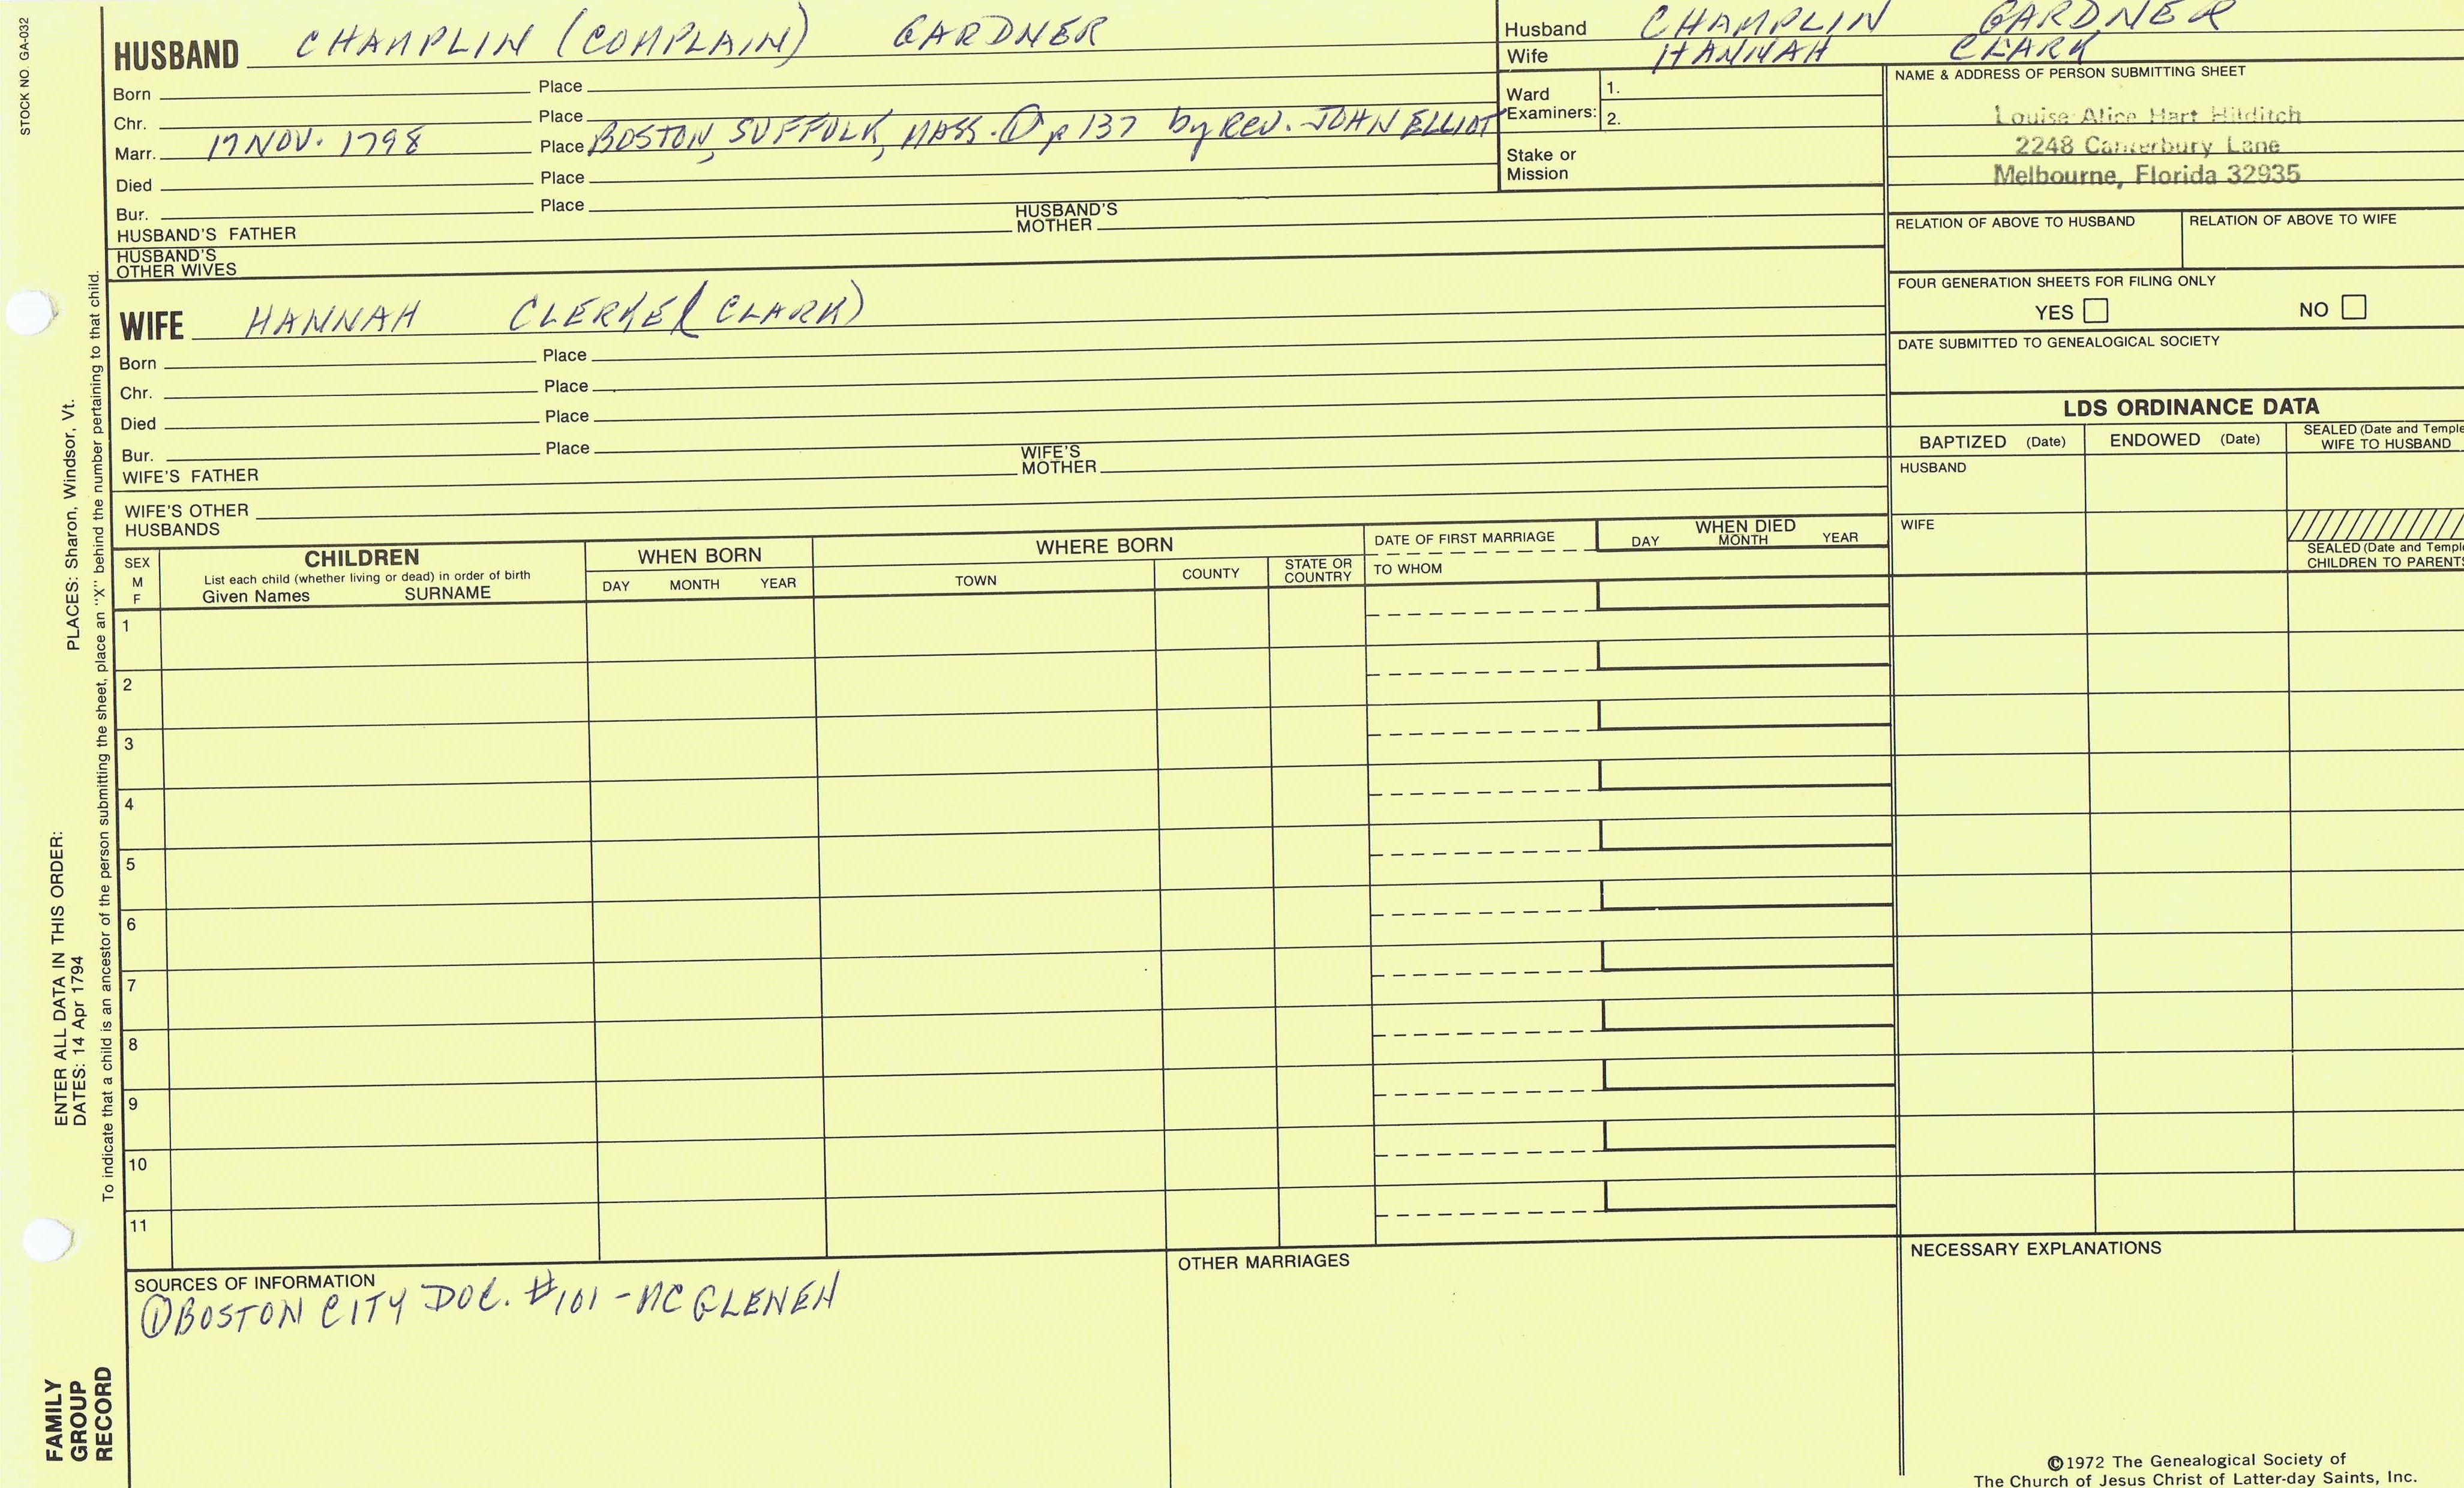 STOCK NO. GA-032
HUSBAND CHAMPLIN (COMPLAIN) GARDNER
Born Place
Chr. Place
Marr. 17 NOV. 1798 Place BOSTON, SUFFOLK, MASS. ① p 137 by REV. JOHN ELLIOT
Died Place
Bur. Place
HUSBAND'S FATHER HUSBAND'S MOTHER
HUSBAND'S OTHER WIVES
Husband CHAMPLIN GARDNER
Wife HANNAH CLARK
Ward Examiners: 1.
2.
Stake or Mission
NAME & ADDRESS OF PERSON SUBMITTING SHEET
Louise Alice Hart Hilditch
2248 Canterbury Lane
Melbourne, Florida 32935
RELATION OF ABOVE TO HUSBAND RELATION OF ABOVE TO WIFE
FOUR GENERATION SHEETS FOR FILING ONLY
YES NO
DATE SUBMITTED TO GENEALOGICAL SOCIETY
WIFE HANNAH CLERKE (CLARK)
Born Place
Chr. Place
Died Place
Bur. Place
WIFE'S FATHER WIFE'S MOTHER
WIFE'S OTHER HUSBANDS
LDS ORDINANCE DATA
BAPTIZED (Date) ENDOWED (Date) SEALED (Date and Temple WIFE TO HUSBAND
HUSBAND
WIFE
SEALED (Date and Templ CHILDREN TO PARENTS
SEX M F
CHILDREN
List each child (whether living or dead) in order of birth
Given Names SURNAME
WHEN BORN
DAY MONTH YEAR
WHERE BORN
TOWN COUNTY STATE OR COUNTRY
DATE OF FIRST MARRIAGE
TO WHOM
WHEN DIED
DAY MONTH YEAR
1
2
3
4
5
6
7
8
9
10
11
SOURCES OF INFORMATION
① BOSTON CITY DOC. #101 - MCGLENEN
OTHER MARRIAGES
NECESSARY EXPLANATIONS
©1972 The Genealogical Society of
The Church of Jesus Christ of Latter-day Saints, Inc.
FAMILY
GROUP
RECORD
ENTER ALL DATA IN THIS ORDER:
DATES: 14 Apr 1794 PLACES: Sharon, Windsor, Vt.
To indicate that a child is an ancestor of the person submitting the sheet, place an "X" behind the number pertaining to that child.